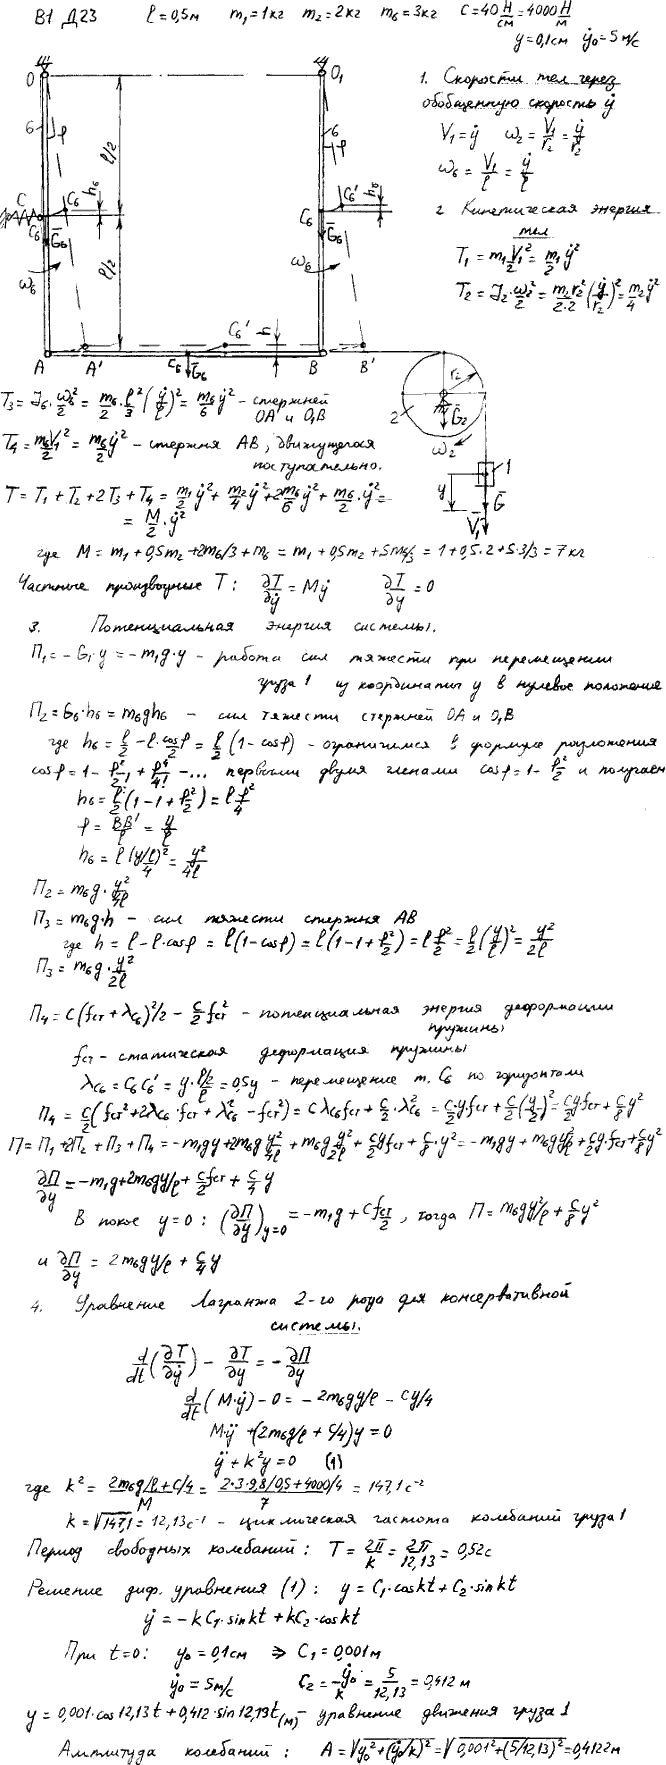 В1 Д23 ℓ = 0,5м m₁ = 1кг m₂ = 2кг m₆ = 3кг C = 40 Н/см = 4000 Н/м
y = 0,1см ẏ₀ = 5 м/с
1. Скорости тел через
обобщенную скорость ẏ
V₁ = ẏ ω₂ = V₁/r₂ = ẏ/r₂
ω₆ = V₁/ℓ = ẏ/ℓ
2 Кинетическая энергия
тел
T₁ = m₁V₁²/2 = m₁/2 ẏ²
T₂ = J₂·ω₂²/2 = m₂r₂²/2·2 (ẏ/r₂)² = m₂/4 ẏ²
O O₁
6 φ ℓ/2 6 φ
C C₆ h₆ C₆' h₆
C₆ Ḡ₆ C₆ Ḡ₆
ω₆ ℓ/2 ω₆
C₆' h
A A' C₆ Ḡ₆ B B'
r₂ 2 Ḡ₂ ω₂
1 y Ḡ V̄₁
T₃ = J₆·ω₆²/2 = m₆/2·ℓ²/3 (ẏ/ℓ)² = m₆/6 ẏ² – стержней
OA и O₁B
T₄ = m₆V₁²/2 = m₆/2 ẏ² – стержня AB, движущегося
поступательно.
T = T₁ + T₂ + 2T₃ + T₄ = m₁/2 ẏ² + m₂/4 ẏ² + 2m₆/6 ẏ² + m₆/2·ẏ² =
= M/2·ẏ²
где M = m₁ + 0,5m₂ + 2m₆/3 + m₆ = m₁ + 0,5m₂ + 5m₆/3 = 1 + 0,5·2 + 5·3/3 = 7 кг
Частные производные T: ∂T/∂ẏ = Mẏ ∂T/∂y = 0
3. Потенциальная энергия системы.
П₁ = – G₁·y = – m₁g·y – работа сил тяжести при перемещении
груза 1 из координаты y в нулевое положение
П₂ = G₆·h₆ = m₆gh₆ – сил тяжести стержней OA и O₁B
где h₆ = ℓ/2 – ℓ·cosφ/2 = ℓ/2 (1 – cosφ) – ограничимся в формуле разложения
cosφ = 1 – φ²/2! + φ⁴/4! – ... первыми двумя членами cosφ = 1 – φ²/2 и получаем
h₆ = ℓ/2 (1 – 1 + φ²/2) = ℓ φ²/4
φ = BB'/ℓ = y/ℓ
h₆ = ℓ (y/ℓ)²/4 = y²/4ℓ
П₂ = m₆g·y²/4ℓ
П₃ = m₆g·h – сил тяжести стержня AB
где h = ℓ – ℓ·cosφ = ℓ(1 – cosφ) = ℓ(1 – 1 + φ²/2) = ℓ φ²/2 = ℓ/2 (y/ℓ)² = y²/2ℓ
П₃ = m₆g·y²/2ℓ
П₄ = C(fст + λc₆)²/2 – C/2 fст² – потенциальная энергия деформации
пружины
fст – статическая деформация пружины
λc₆ = C₆C₆' = y·ℓ/2/ℓ = 0,5y – перемещение т. C₆ по горизонтали
П₄ = C/2 (fст² + 2λc₆·fст + λc₆² – fст²) = C λc₆fст + C/2·λc₆² = C/2·y·fст + C/2 (y/2)² = C/2 y fст + C/8 y²
П = П₁ + 2П₂ + П₃ + П₄ = – m₁gy + 2m₆g y²/4ℓ + m₆g·y²/2ℓ + C/2 y fст + C/8·y² = – m₁gy + m₆gy²/ℓ + C/2 y·fст + C/8 y²
∂П/∂y = – m₁g + 2m₆gy/ℓ + C/2 fст + C/4 y
В покое y = 0 : (∂П/∂y)y=0 = – m₁g + C fст/2 , тогда П = m₆gy²/ℓ + C/8 y²
и ∂П/∂y = 2m₆gy/ℓ + C/4 y
4. Уравнение Лагранжа 2-го рода для консервативной
системы.
d/dt (∂T/∂ẏ) – ∂T/∂y = – ∂П/∂y
d/dt (M·ẏ) – 0 = – 2m₆gy/ℓ – Cy/4
M·ÿ + (2m₆g/ℓ + C/4)y = 0
ÿ + k²y = 0 (1)
где k² = 2m₆g/ℓ + C/4 / M = 2·3·9,8/0,5 + 4000/4 / 7 = 147,1 с⁻²
k = √147,1 = 12,13 с⁻¹ – циклическая частота колебаний груза 1
Период свободных колебаний : T = 2π/k = 2π/12,13 = 0,52с
Решение диф. уравнения (1) : y = C₁·coskt + C₂·sinkt
ẏ = – kC₁·sinkt + kC₂·coskt
При t=0: y₀ = 0,1см ⇒ C₁ = 0,001м
ẏ₀ = 5м/с C₂ = ẏ₀/k = 5/12,13 = 0,412 м
y = 0,001·cos12,13t + 0,412·sin12,13t (м) – уравнение движения груза 1
Амплитуда колебаний : A = √y₀² + (ẏ₀/k)² = √0,001² + (5/12,13)² = 0,4122м